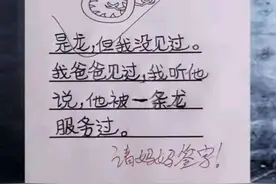 是龙,但我没见过。
我爸爸见过,我听他
说,他被一条龙
服务过。
请妈妈签字!